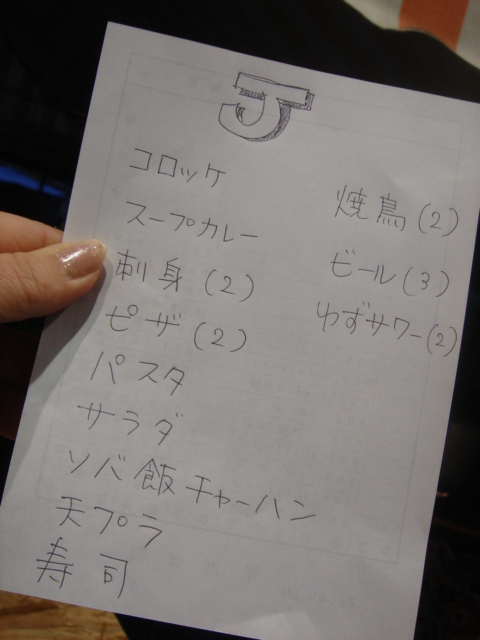 J
コロッケ
スープカレー
刺身 (2)
ピザ (2)
パスタ
サラダ
ソバ飯 チャーハン
天プラ
寿司
焼鳥 (2)
ビール (3)
ゆずサワー (2)